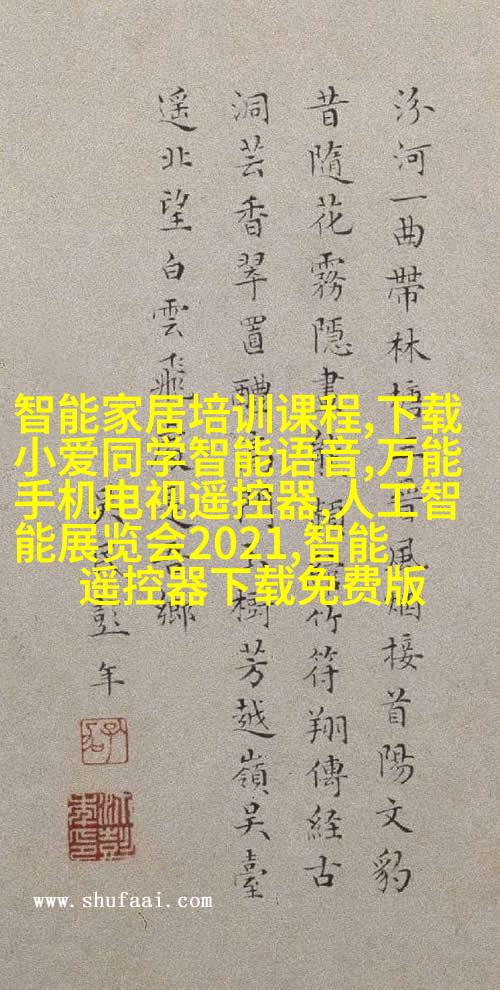 汾河一曲帶林 風烟接首陽文豹
昔隨花霧隱 竹符翔傳經古
洞芸香翠置醴 樹芳越嶺吳臺
遥北望白雲飛 鄉
彭年
智能家居培训课程,下载
小爱同学智能语音,万能
手机电视遥控器,人工智
能展览会2021,智能
遥控器下载免费版
www.shufaai.com